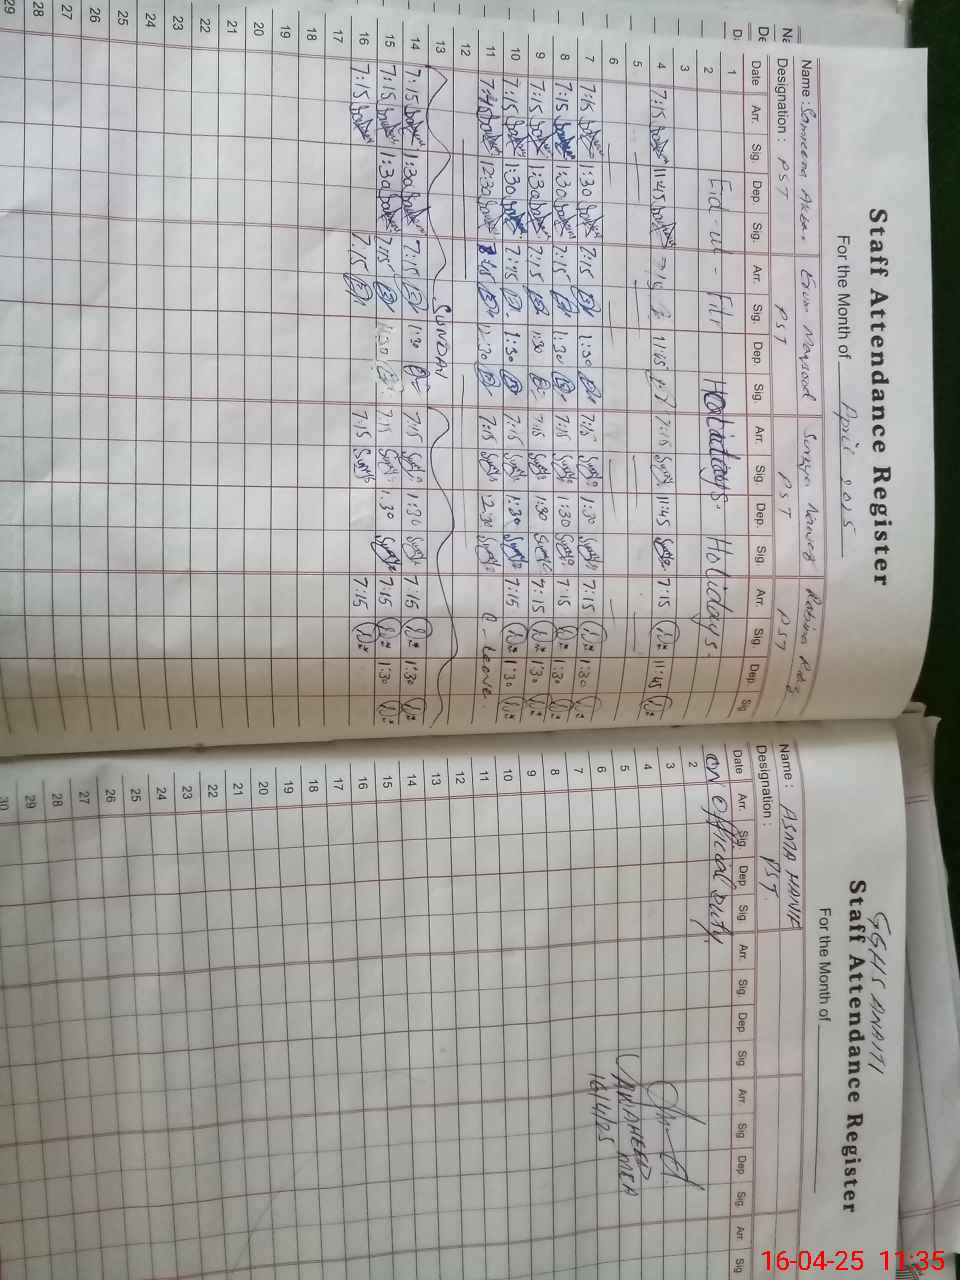 Staff Attendance Register
For the Month of April 2025
Name : Samreena Erum Maqsood Rabina
Designation : PST PST PST PST
Date Arr. Sig. Dep Sig. Arr. Sig. Dep. Sig. Arr. Sig. Dep. Sig Arr. Sig. Dep. Sig
1
2 Eid-ul-Fitr Holidays. Holidays.
3
4 7:15 11:45 7:15 11:45 7:15 11:45 7:15 11:45
5
6
7 7:15 1:30 7:15 1:30 7:15 1:30 7:15 1:30
8 7:15 1:30 7:15 1:30 7:15 1:30 7:15 1:30
9 7:15 1:30 7:15 1:30 7:15 1:30 7:15 1:30
10 7:15 1:30 7:15 1:30 7:15 1:30 7:15 1:30
11 12:30 12:30 7:15 12:30 C-leave.
12
13 SUNDAY
14 7:15 1:30 7:15 1:30 7:15 1:30 7:15 1:30
15 7:15 1:30 7:15 1:30 7:15 1:30 7:15 1:30
16 7:15 7:15 7:15 7:15
17
18
19
20
21
22
23
24
25
26
27
28
29
GGHS
Staff Attendance Register
For the Month of
Name : ASMA HANIF
Designation : PST.
Date Arr. Sig. Dep Sig Arr. Sig. Dep Sig. Arr. Sig Dep Sig. Arr. Sig.
on official Duty.
2
3
4
5
6
7
8
9
10
11
12
13
14
15
16
17
18
19
20
21
22
23
24
25
26
27
28
29
30
MEA
16/4/25
16-04-25 11:35